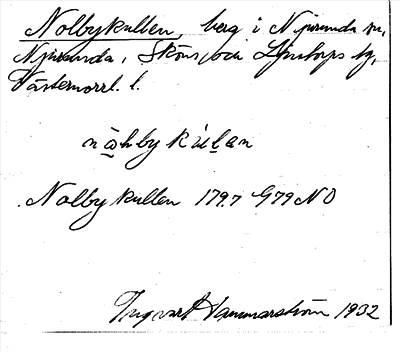 Nolbykullen, berg i Njurunda sn,
Njurunda, Sköns och Ljustorps tg,
Västernorrl. l.
nåhbykùlan
Nolbykullen 179.7 G79 NO
Ingvar Hammarström 1932